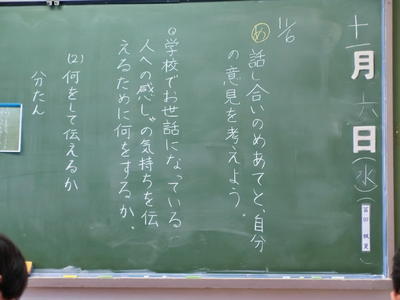 十一月六日(水)
11/6
め 話し合いのめあてと、自分
の意見を考えよう。
Q学校でお世話になっている
人への感しゃの気持ちを伝
えるために何をするか。
(2)何をして伝えるか
分たん